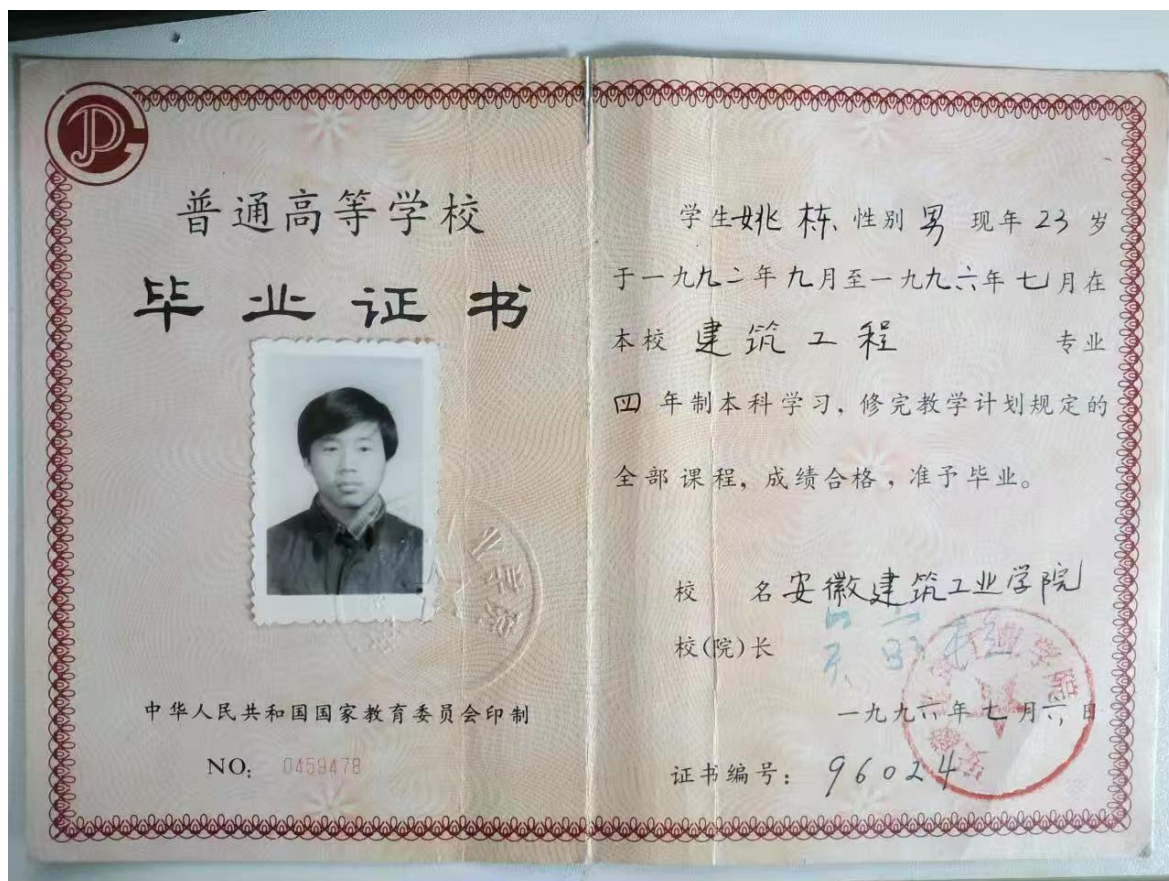 普通高等学校
毕业证书
中华人民共和国国家教育委员会印制
NO: 0459478
学生姚栋 性别男 现年23岁
于一九九二年九月至一九九六年七月在
本校 建筑工程 专业
四 年制本科学习，修完教学计划规定的
全部课程，成绩合格，准予毕业。
校 名 安徽建筑工业学院
校(院)长
一九九六年七月六日
证书编号: 96024